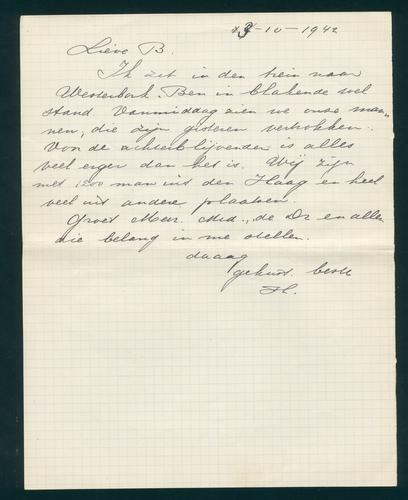 3-10-1942
Lieve B.
Ik zit in den trein naar
Westerbork. Ben in blakende wel
stand. Vanmiddag zien we onze man„
nen, die zijn gisteren vertrokken.
Voor de achterblijvenden is alles
veel erger dan het is. Wij zijn
met 1200 man uit den Haag en heel
veel uit andere plaatsen.
Groet Mevr. Mid., de Dr en allen
die belang in me stellen.
daaag
gekust. beste
H.